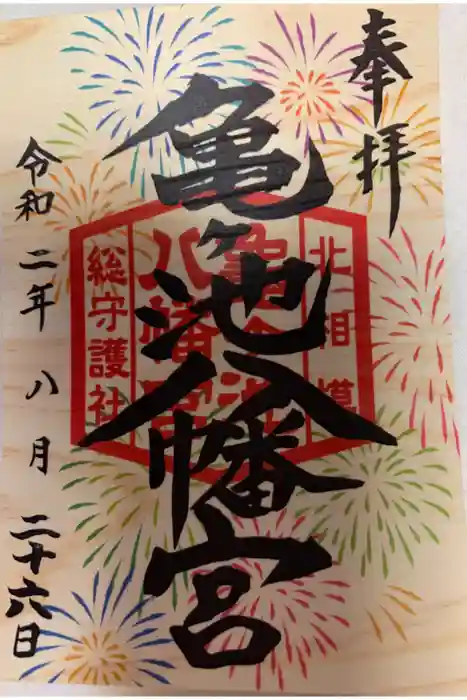 奉拝
北相模
亀ヶ池
八幡宮
総守護社
亀ヶ池八幡宮
令和二年八月二十六日